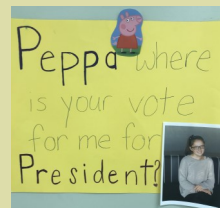 Peppa where
is your vote
for me for
President?